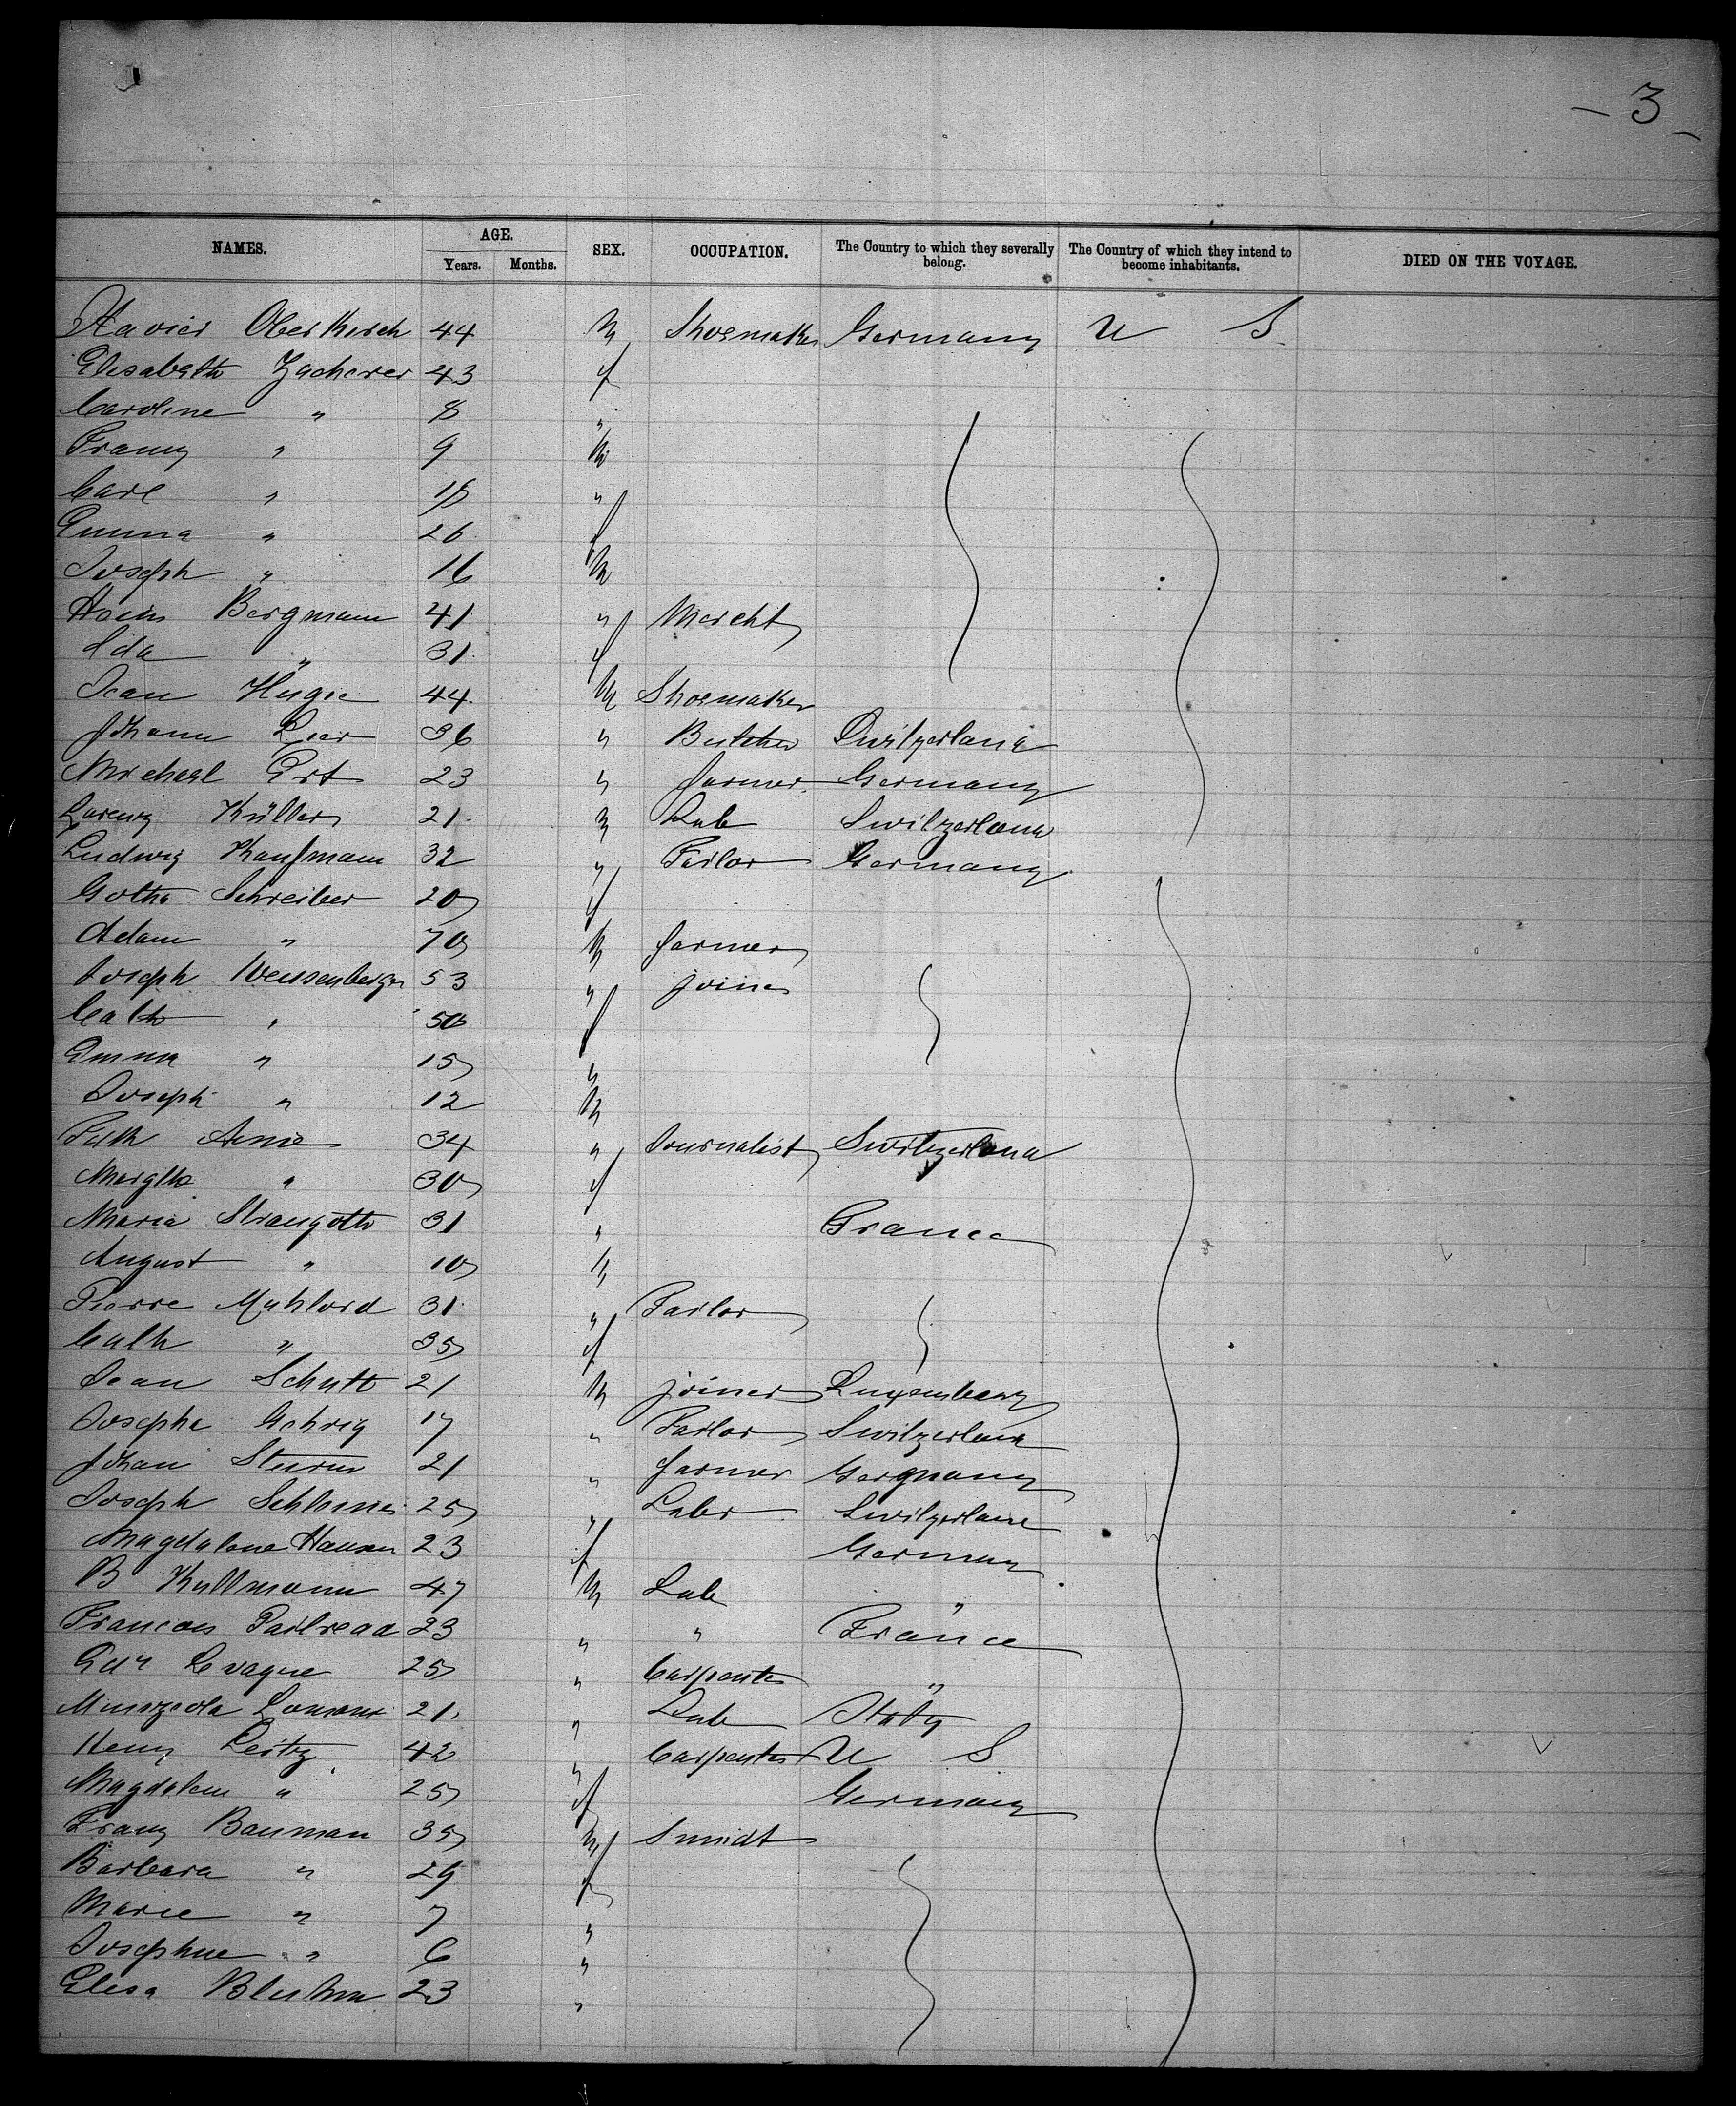 - 3 -
NAMES. AGE. Years. Months. SEX. OCCUPATION. The Country to which they severally belong. The Country of which they intend to become inhabitants. DIED ON THE VOYAGE.
Xavier Oberkirch 44 M Shoemaker Germany U S
Elisabeth Zacherer 43 f
Caroline " 8 "
Franz " 9 M
Carl " 18 "
Emma " 26 f
Joseph " 16 M
Bergmann 41 " Mercht
Ida " 31 f
Jean Hugie 44 M Shoemaker
Johann 36 " Butcher Switzerland
Michael Ert 23 " farmer Germany
Lorenz Küller 21 M Lab Switzerland
Ludwig Kaufmann 32 " Tailor Germany
Gotha Schreiber 20 f
Adam " 70 M farmer
Joseph Weissenberger 53 " joiner
Cath " 50 f
Emma " 15 "
Joseph " 12 M
34 " Journalist Switzerland
Margth " 30 f
Maria 31 " France
August " 10 M
Pierre Muhlord 31 " Tailor
Cath " 35 f
Jean Schutt 21 M joiner Luxemburg
Josepha Gehrig 17 " Tailor Switzerland
Johan Sturm 21 " farmer Germany
Joseph 25 " Labr Switzerland
Magdalena Hansen 23 f Germany
B Kullmann 47 M Lab "
Francois 23 " " France
Levague 25 " Carpenter "
21 " Lab Italy
Henry Leitz 42 " Carpenter U S
Magdalena " 25 f Germany
Franz Bauman 35 M Smidt
Barbara " 29 f
Marie " 7 "
Josephine " 6 "
Elisa Bluhm 23 "